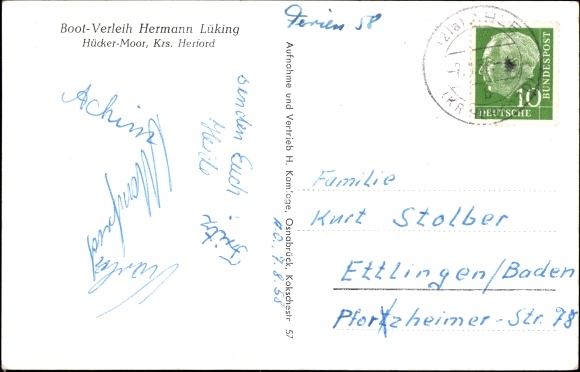 Boot-Verleih Hermann Lüking
Hücker-Moor, Krs. Herford
Ferien 58
senden Euch:
Heide
Fritz
Achim
Manfred
Aufnahme und Vertrieb H. Kamlage, Osnabrück, Kokschestr 57
7.8.58
10
DEUTSCHE
BUNDESPOST
Familie
Kurt Stolber
Ettlingen/Baden
Pforzheimer-Str. 78